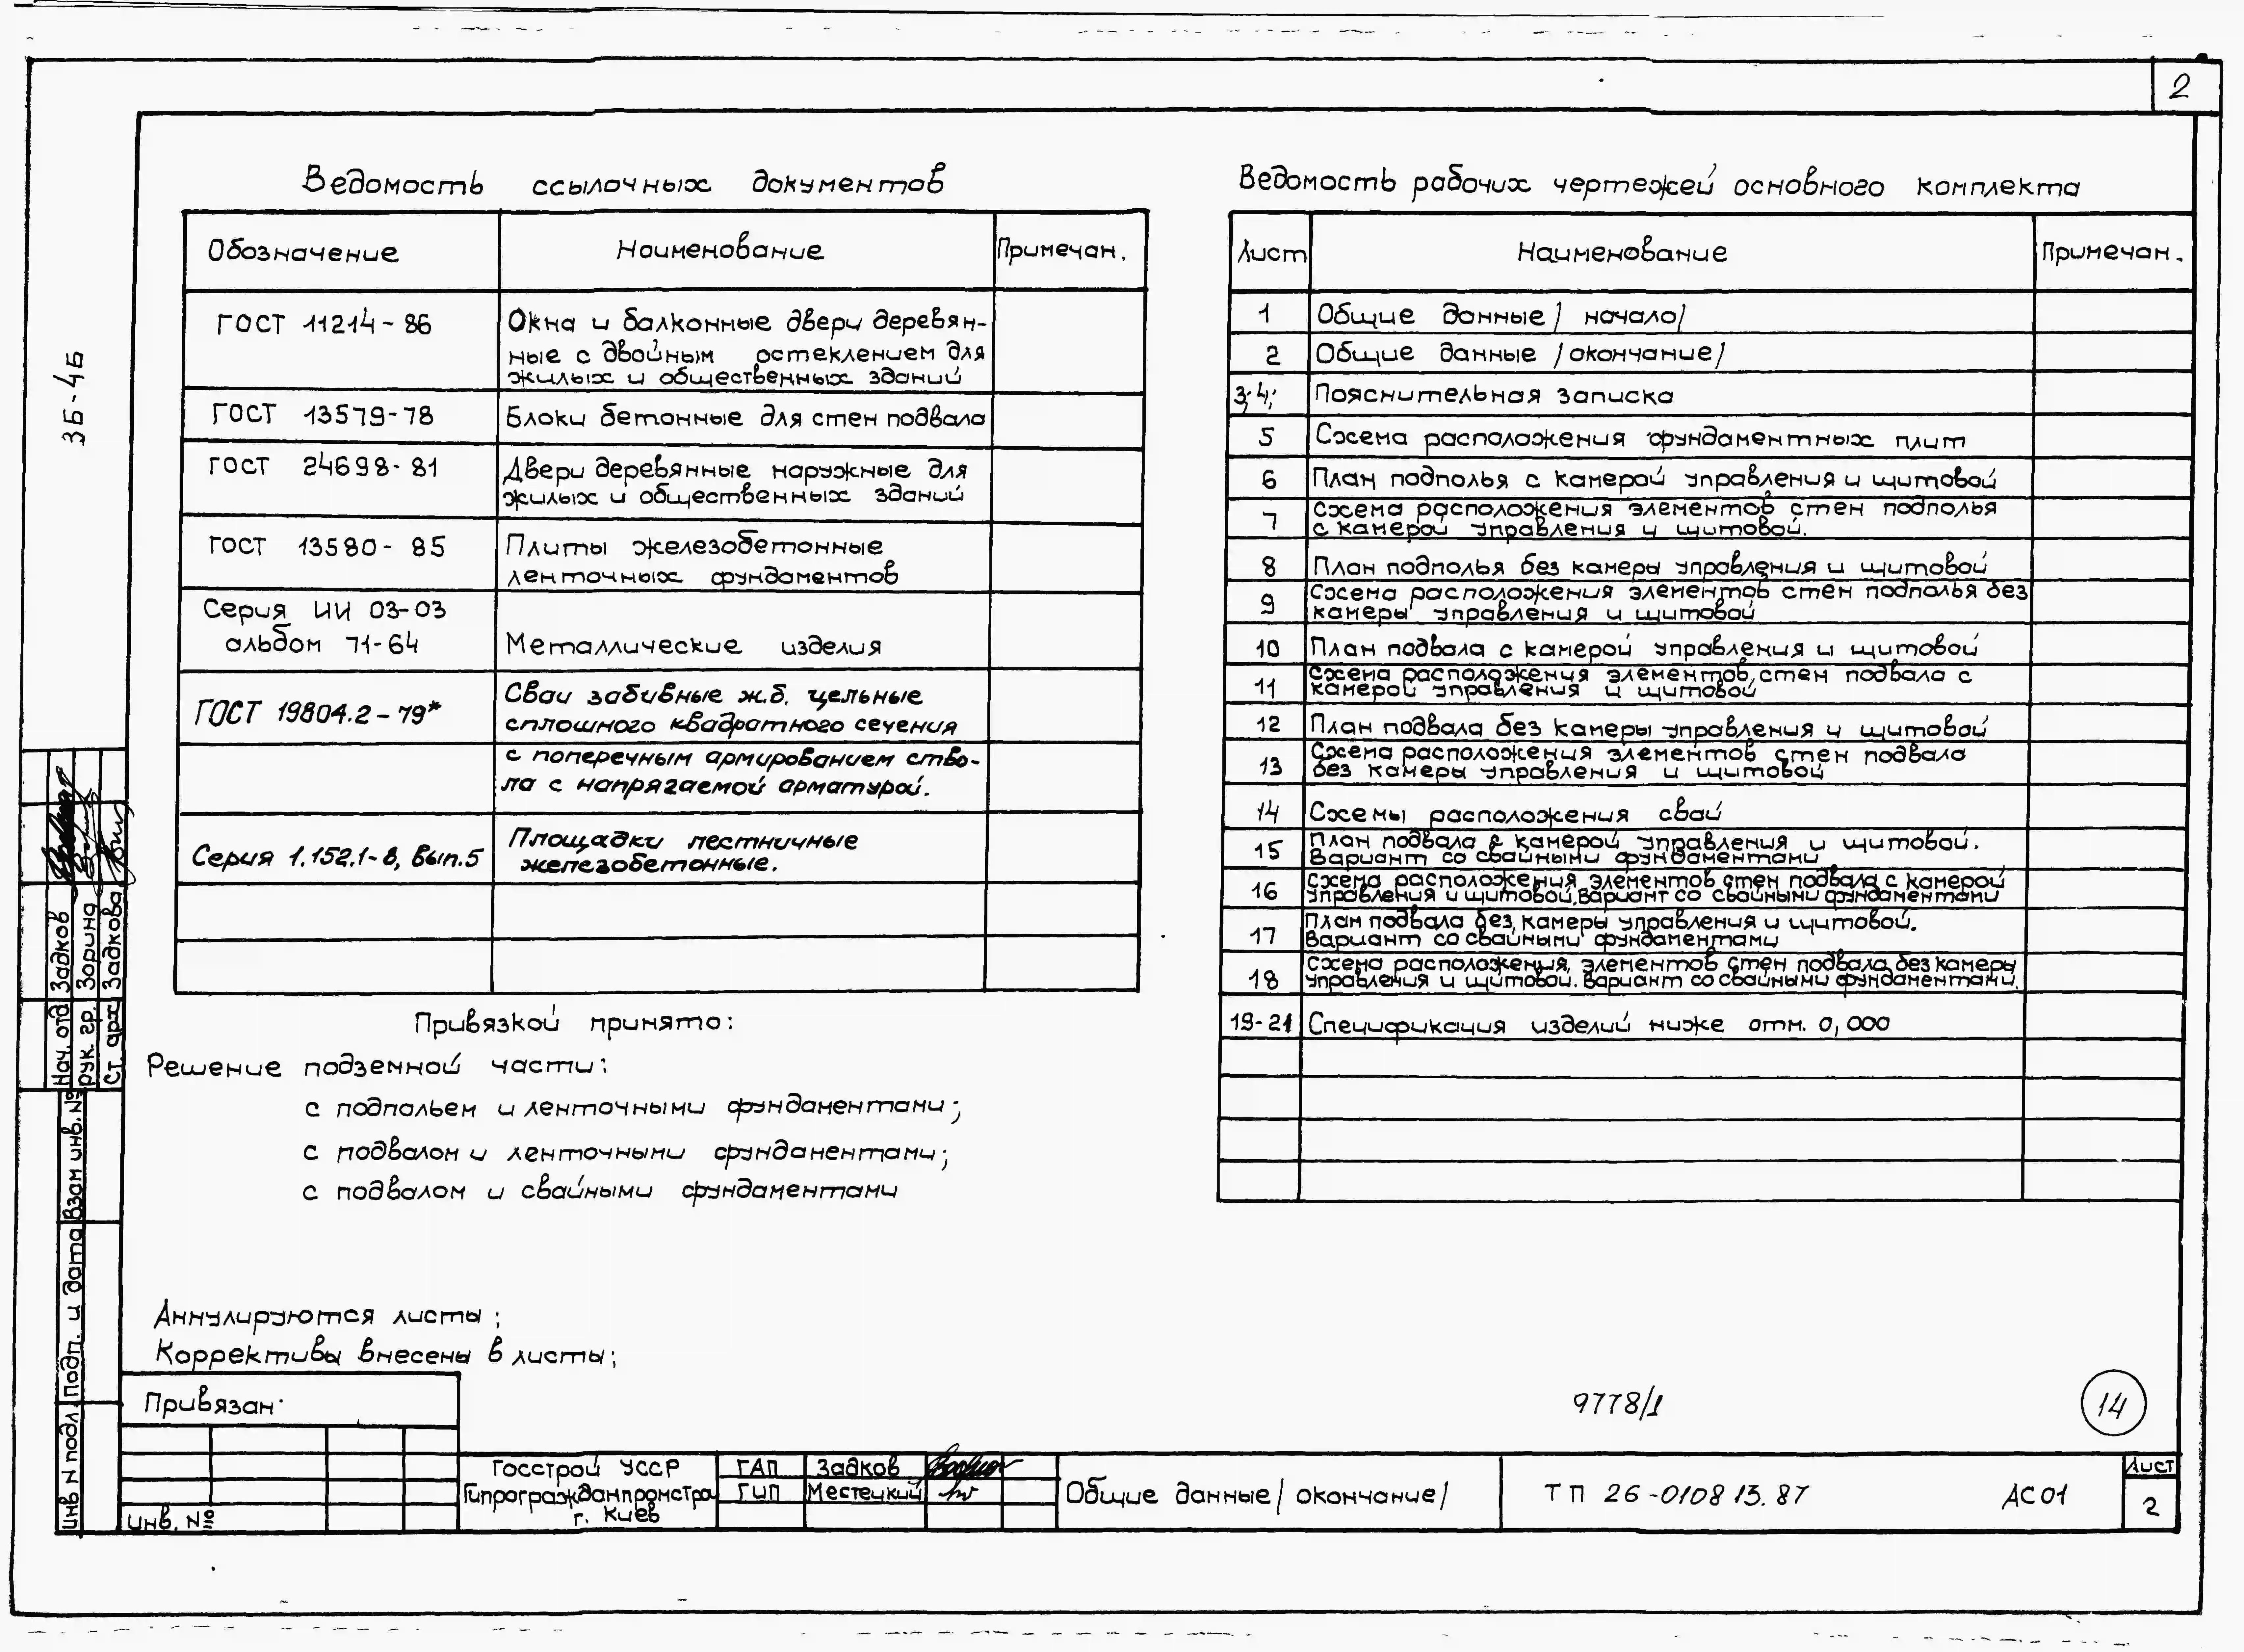 2
Ведомость ссылочных документов
Обозначение Наименование Примечан.
ГОСТ 11214-86 Окна и балконные двери деревян-
ные с двойным остеклением для
жилых и общественных зданий
ГОСТ 13579-78 Блоки бетонные для стен подвала
ГОСТ 24698-81 Двери деревянные наружные для
жилых и общественных зданий
ГОСТ 13580-85 Плиты железобетонные
ленточных фундаментов
Серия ИИ 03-03
альбом 71-64 Металлические изделия
ГОСТ 19804.2-79* Сваи забивные ж.б. цельные
сплошного квадратного сечения
с поперечным армированием ство-
ла с напрягаемой арматурой.
Серия 1.152.1-8, Вып.5 Площадки лестничные
железобетонные.
Привязкой принято:
Решение подземной части:
с подпольем и ленточными фундаментами;
с подвалом и ленточными фундаментами;
с подвалом и свайными фундаментами
Аннулируются листы;
Коррективы внесены в листы;
Ведомость рабочих чертежей основного комплекта
Лист Наименование Примечан.
1 Общие данные /начало/
2 Общие данные /окончание/
3; 4; Пояснительная записка
5 Схема расположения фундаментных плит
6 План подполья с камерой управления и щитовой
7 Схема расположения элементов стен подполья
с камерой управления и щитовой.
8 План подполья без камеры управления и щитовой
9 Схема расположения элементов стен подполья без
камеры управления и щитовой
10 План подвала с камерой управления и щитовой
11 Схема расположения элементов стен подвала с
камерой управления и щитовой
12 План подвала без камеры управления и щитовой
13 Схема расположения элементов стен подвала
без камеры управления и щитовой
14 Схемы расположения свай
15 План подвала с камерой управления и щитовой.
Вариант со свайными фундаментами
16 Схема расположения элементов стен подвала с камерой
управления и щитовой. Вариант со свайными фундаментами
17 План подвала без камеры управления и щитовой.
Вариант со свайными фундаментами
18 Схема расположения элементов стен подвала без камеры
управления и щитовой. Вариант со свайными фундаментами.
19-21 Спецификация изделий ниже отм. 0,000
3Б-4Б
Нач. отд Задков
рук. гр. Зорина
Ст. арх Задкова
Взам инв. №
Подп. и дата
инв N подл.
Привязан
инв. №
9778/1
14
Госстрой УССР
Гипрогражданпромстрой
г. Киев
ГАП Задков
ГИП Местецкий
Общие данные /окончание/
ТП 26-0108 13.87 АС01
Лист
2